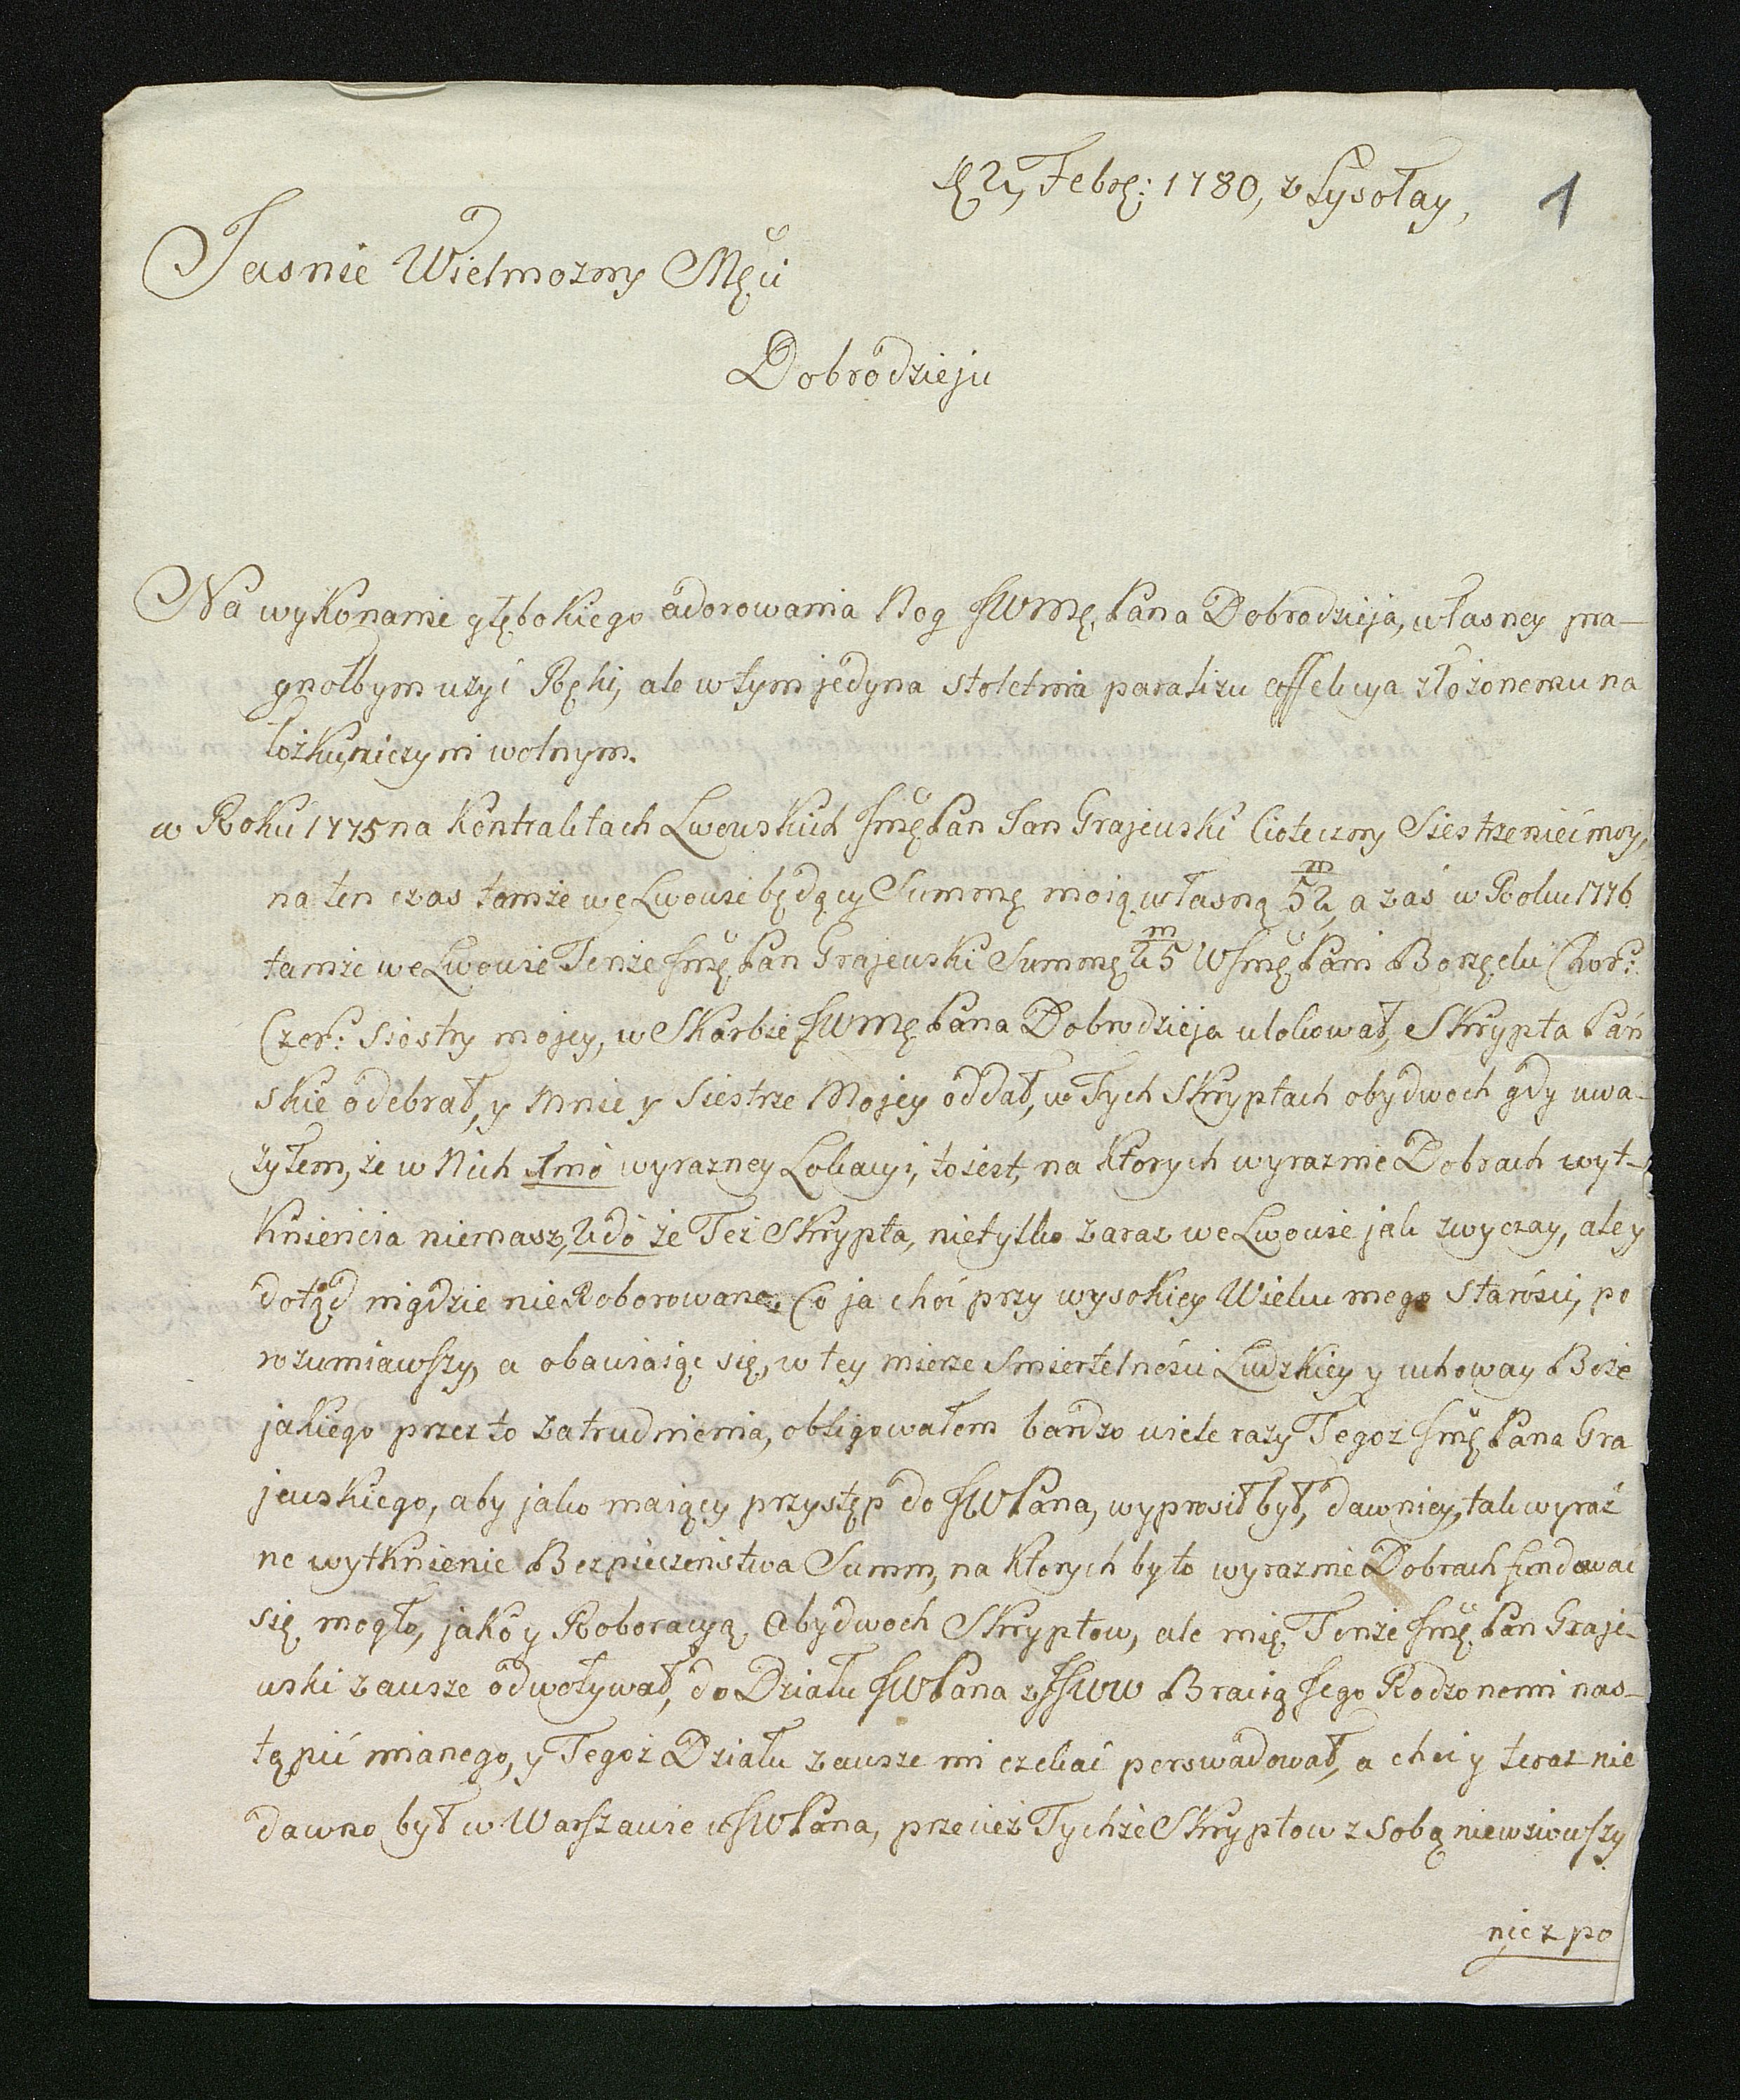 2, Febr: 1780, z Łysołay,
1
Jasnie Wielmozny Mci
Dobrodzieju
Na wykonanie głębokiego adorowania Nog JWmć Pana Dobrodzieja, własney pra-
gnołbym uzyć Ręki, ale w tym jedyna stoletnia paraliżu affekcya złożonemu na
łożku, nieczyni wolnym.
w Roku 1775 na Kontraktach Lwowskich Jmć Pan Jan Grajewski Cioteczny Siestrzeniec moy,
na ten czas tamże we Lwowie będący Summę moią własną 52 m, a zas w Roku 1776
tamże we Lwowie Tenże Jmć Pan Grajewski Summę 25 m WJmć Pani Borzęcki Chor:
Czer: Siostry mojey, w Skarbie JWmć Pana Dobrodzieja ulokował, Skrypta Pań
skie odebrał, y Mnie y Siestrze Mojey oddał, w Tych Skryptach obydwoch gdy uwa-
żyłem, że w Nich 1mo wyrazney Lokacyi, to iest, na Ktorych wyraznie Dobrach wyt-
knięncia niemasz, 2do że Też Skrypta, nietylko zaraz we Lwowie jak zwyczay, ale y
dotąd nigdzie nie Roborowane. Co ja choć przy wysokiey Wieku mego starości, po
rozumiawszy, a obawiaiąc się, w tey mierze Smiertelności Ludzkiey y uchoway Boże
jakiego przez to zatrudnienia, obligowałem bardzo wiele razy Tegoż Jmć Pana Gra
jewskiego, aby jako maiący przystęp do JWPana, wyprosił był, dawniey, tak wyraź
ne wytknienie Bezpieczeństwa Summ, na Ktorych było wyraznie Dobrach fundować
się mogło, jako y Roboracyą Obydwoch Skryptow, ale mię Tenże Jmć Pan Graje-
wski zawsze odwoływał, do Działu JWPana z JJWW Bracią Jego Rodzonemi nas-
tąpić mianego, y Tegoż Działu zawsze mi czekać perswadował, a choć y teraz nie
dawno był w Warszawie u JWPana, przecież Tychże Skryptow z Sobą niewziowszy
nic z po